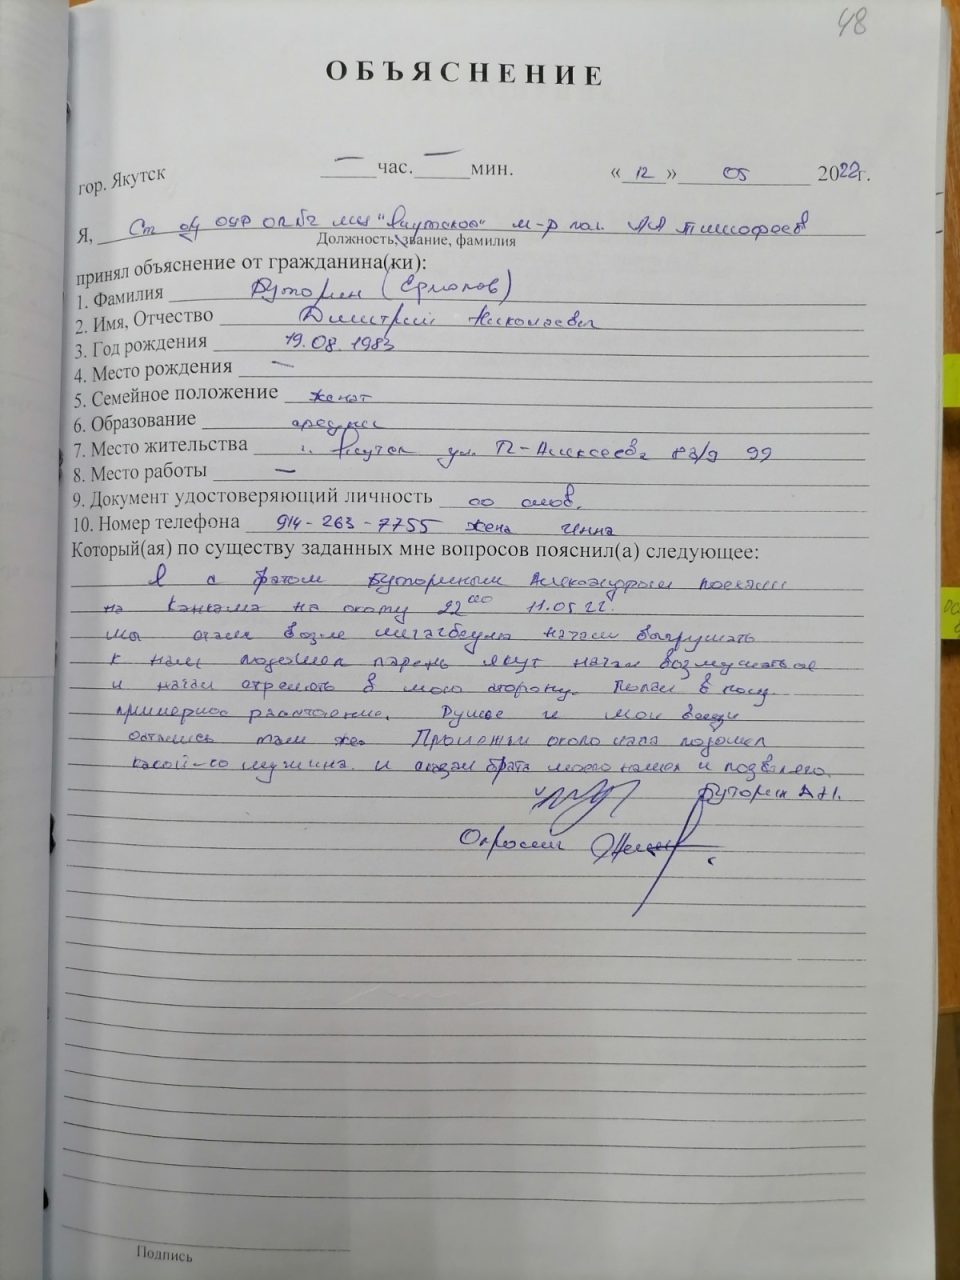 48
ОБЪЯСНЕНИЕ
гор. Якутск — час. — мин. « 12 » 05 2022г.
Я, Ст о/у ОУР ОП №2 МУ "Якутское" м-р пол. АА Тимофеев
Должность, звание, фамилия
принял объяснение от гражданина(ки):
1. Фамилия Буторин (Ермолов)
2. Имя, Отчество Дмитрий Николаевич
3. Год рождения 19.08.1983
4. Место рождения —
5. Семейное положение женат
6. Образование среднее
7. Место жительства г. Якутск ул. П-Алексеева 83/9 99
8. Место работы —
9. Документ удостоверяющий личность со слов.
10. Номер телефона 914-263-7755 жена Инна
Который(ая) по существу заданных мне вопросов пояснил(а) следующее:
Я с братом Буториным Александром поехали
на на охоту 22 00 11.05.22г.
мы стали возле начали выгружать
к нам подошел парень якут начал возмущаться
и начал стрелять в мою сторону. Попал в ногу.
примерное растояние. Ружье и мои вещи
остались там же. около часа подошел
какой-то мужчина. и сказал брата моего нашел и
Буторин Д.Н.
Опросил
Подпись